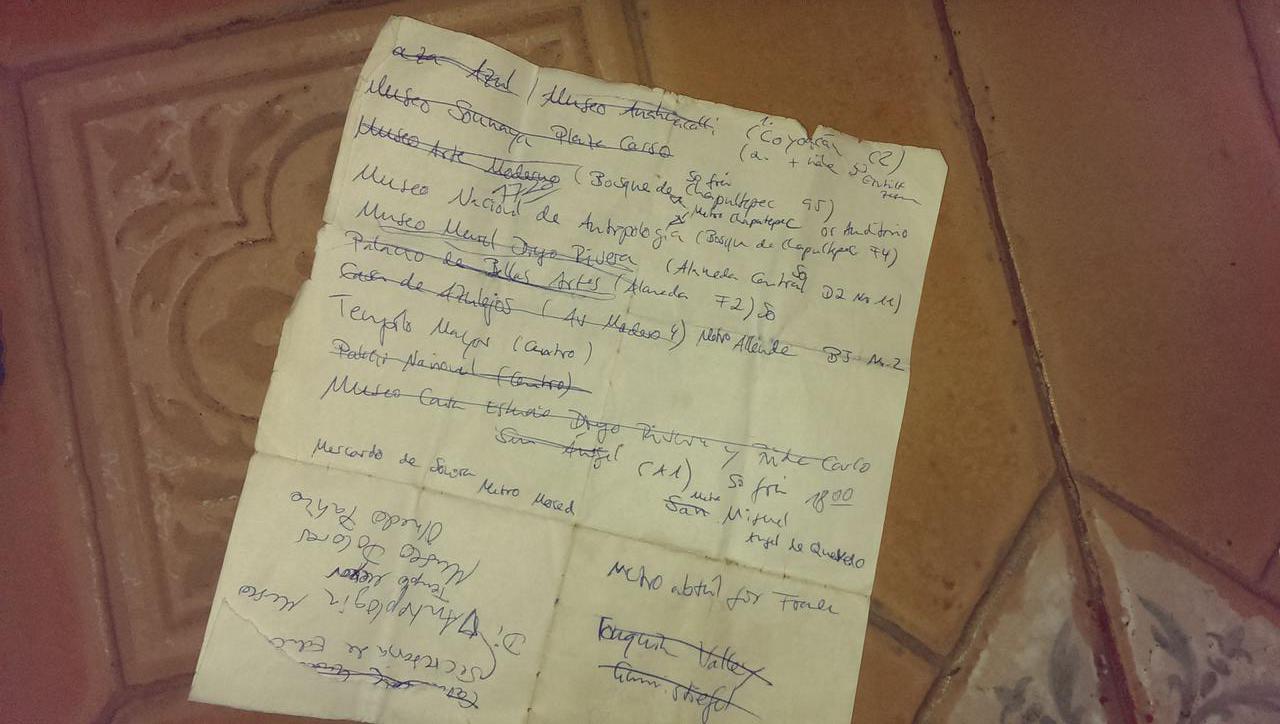 aza Azul / Museo Anahuacalli 1. (Coyoacán (2)
Museo Soumaya Plaza Carso
Museo Arte Moderno (Bosque de Chapultepec 95) So frei
1720
Metro Chapultepec or Auditorio
Museo Nacional de Antropología (Bosque de Chapultepec F4)
Museo Mural Diego Rivera (Alameda Central D2 No 11) So
Palacio de Bellas Artes (Alameda F2) So
Casa de Azulejos (Av Madero 4) Metro Allende B3 No. 2
Templo Mayor (Centro)
Nacional (Centro)
Museo Casa Estudio Diego Rivera y Carlo
San Ángel (A1) So frei 18 00
Mercardo de Sonora
Metro Merced
Metro
San Miguel
Angel de Quevedo
Metro for
Valley
Olmedo Patiño
Museo Dolores
Templo Mayor
Di Antroplogia Museo
de